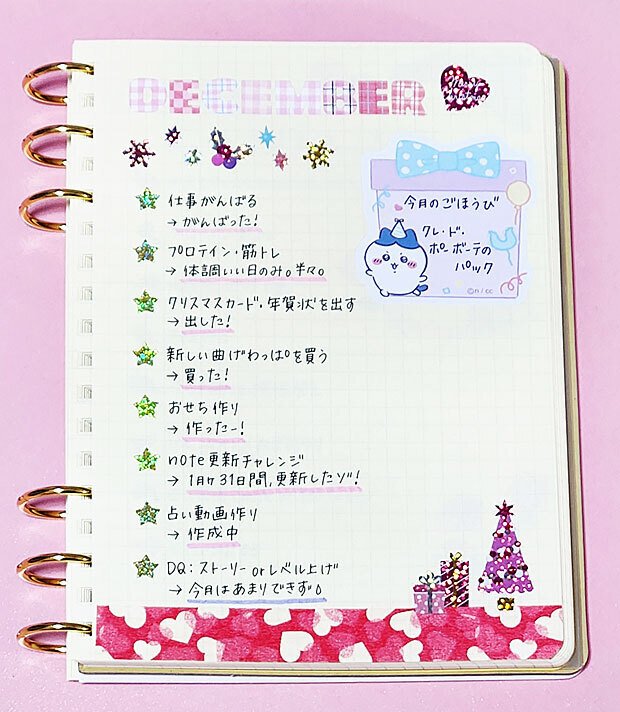 DECEMBER
仕事がんばる
→ がんばった!
プロテイン・筋トレ
→ 体調いい日のみ。半々。
クリスマスカード・年賀状を出す
→ 出した!
新しい曲げわっぱを買う
→ 買った!
おせち作り
→ 作ったー!
note更新チャレンジ
→ 1ヶ月31日間,更新したゾ!
占い動画作り
→ 作成中
DQ:ストーリー or レベル上げ
→ 今月はあまりできず
今月のごほうび
クレ・ド・
ポーボーテの
パック